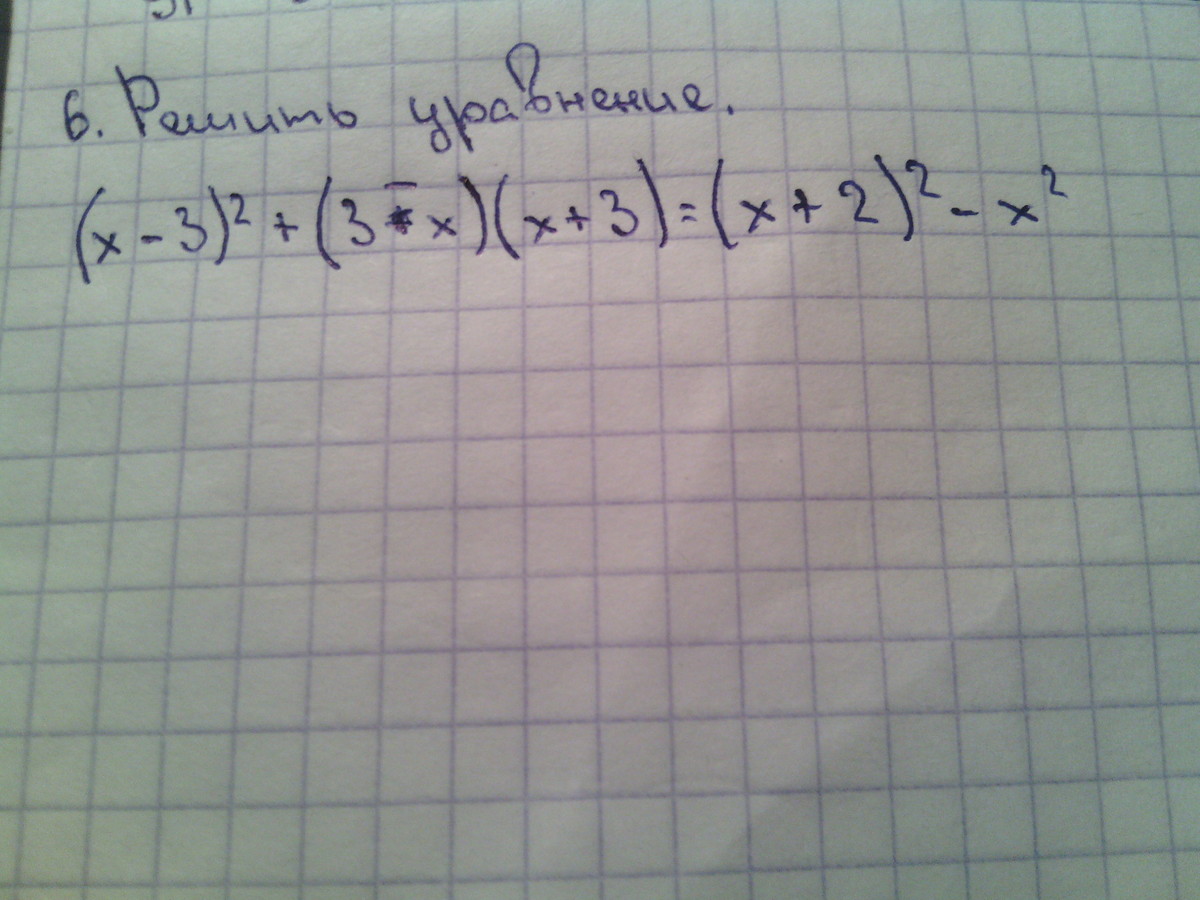 6. Решить уравнение.
(x - 3)² + (3 - x)(x + 3) = (x + 2)² - x²